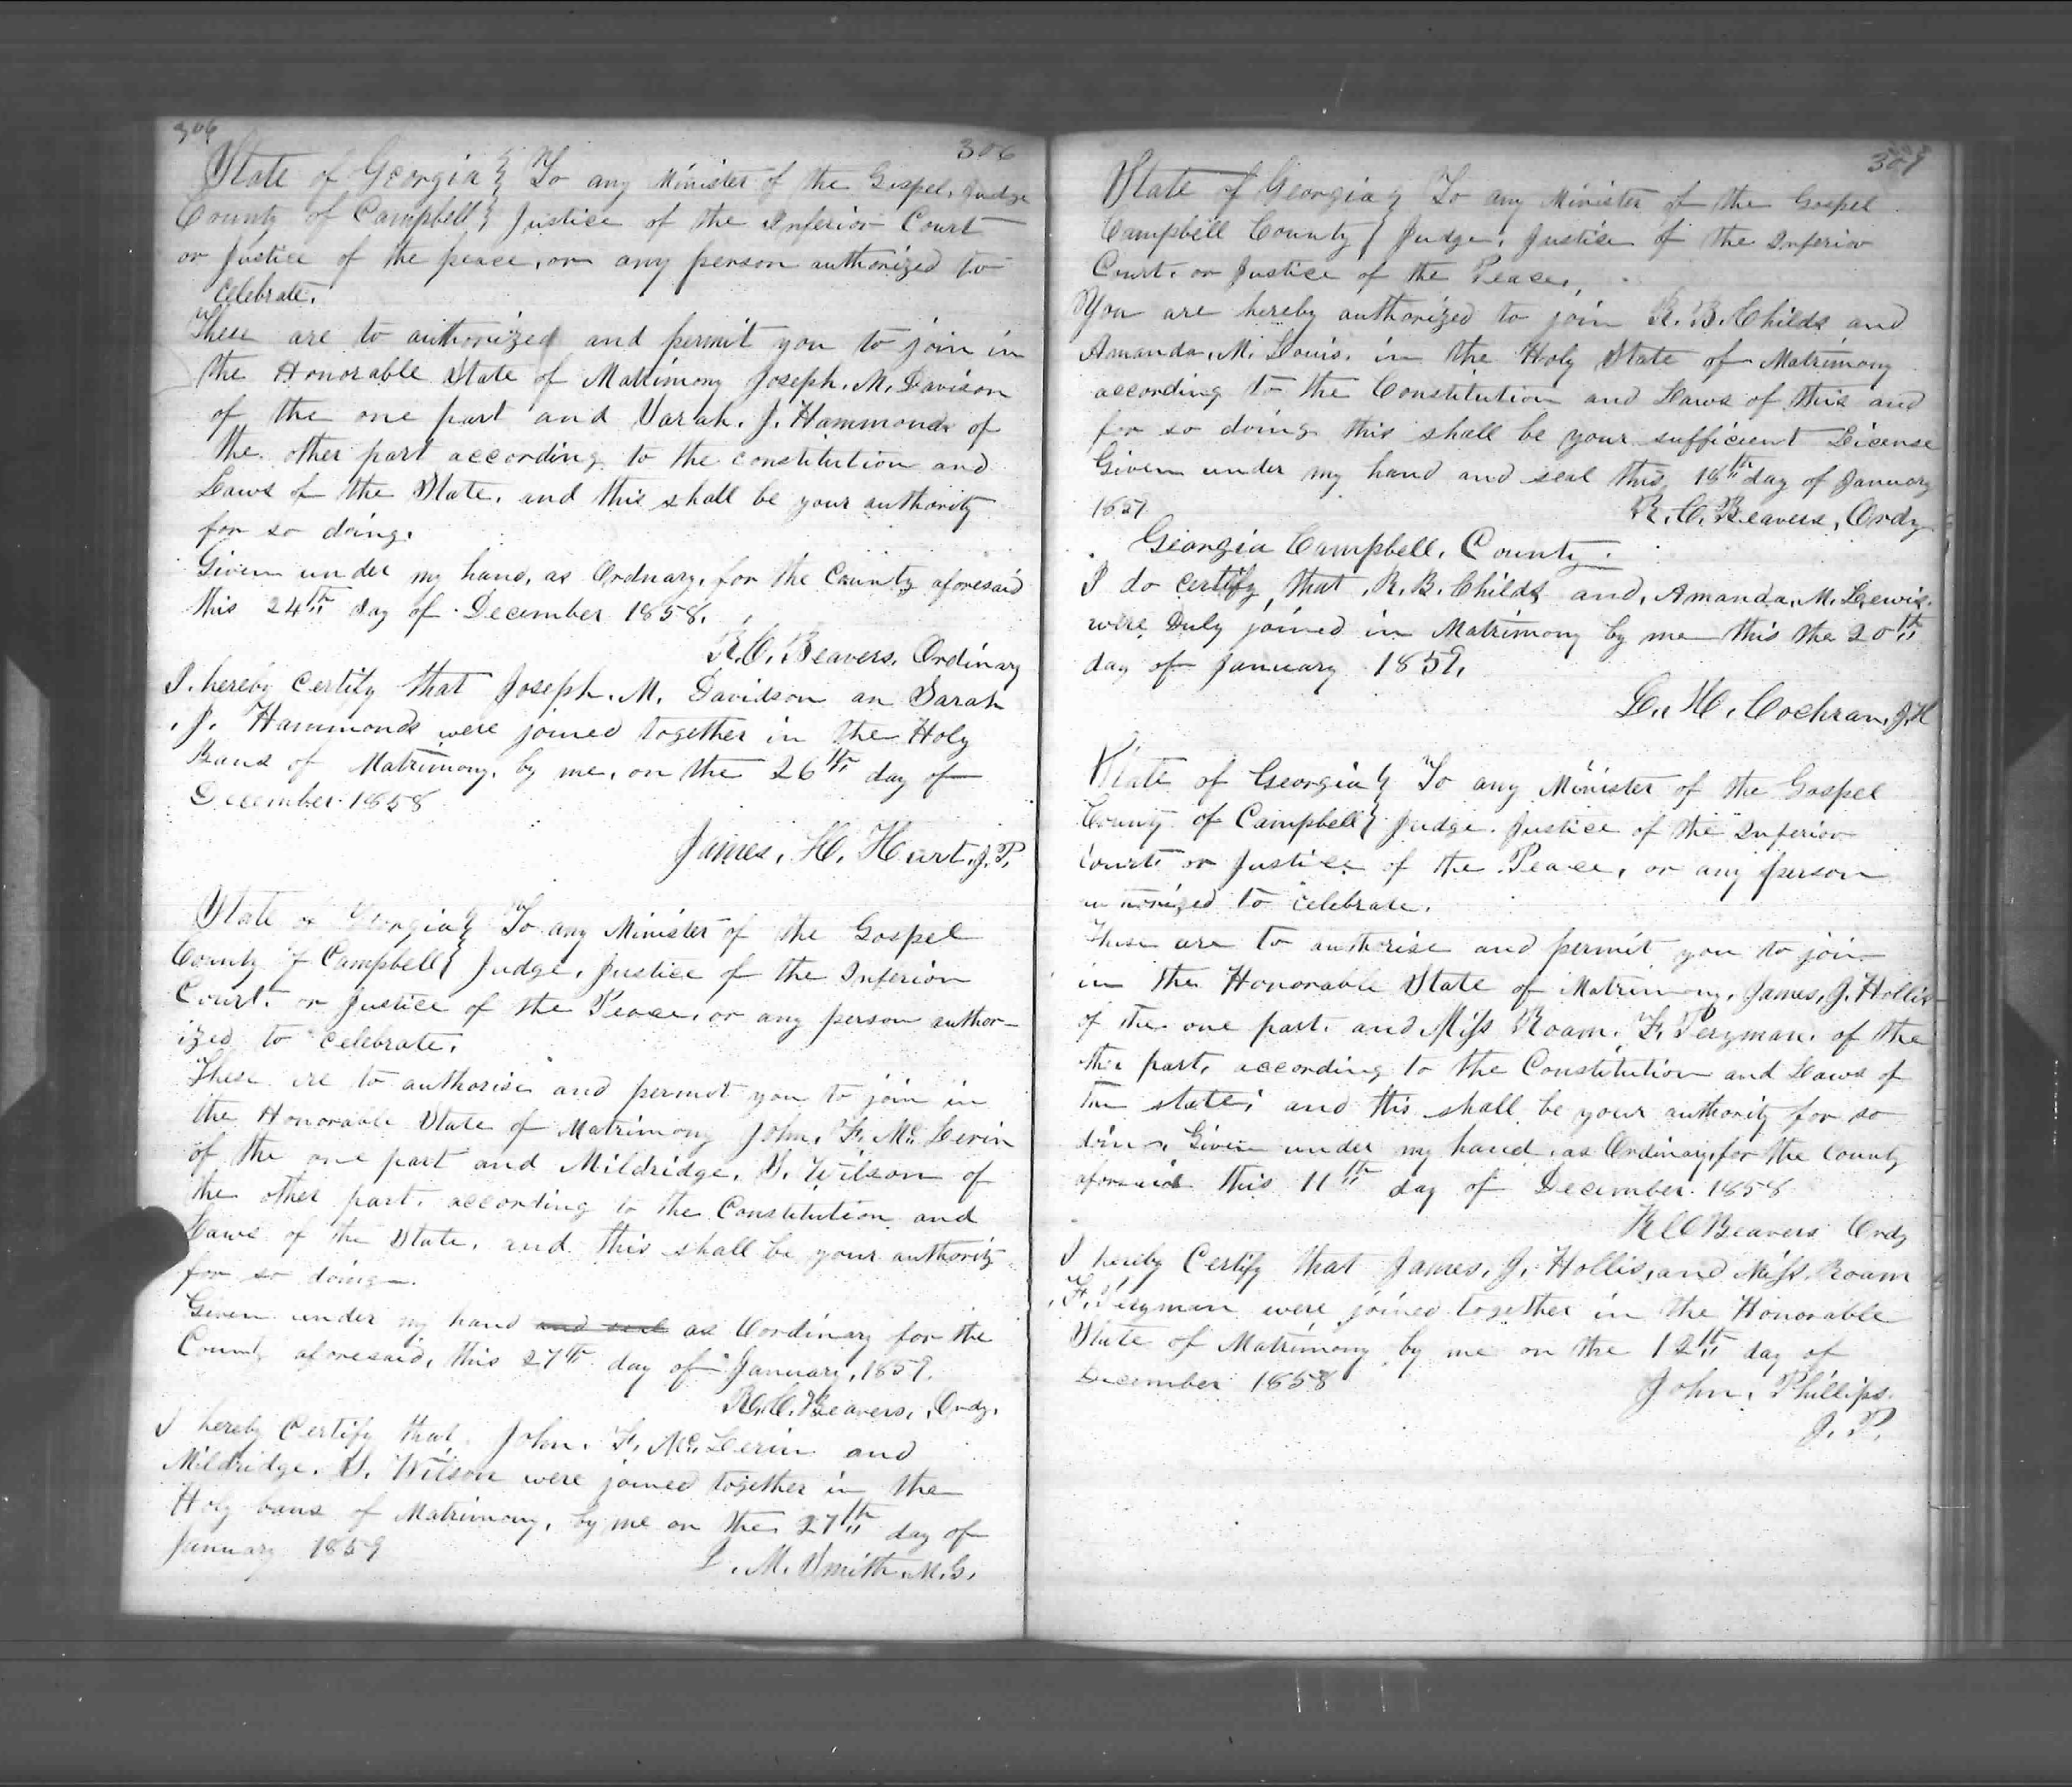 306
306
State of Georgia } To any Minister of the Gospel, Judge
County of Campbell } Justice of the Inferior Court
or Justice of the peace, or any person authorized to
celebrate.
These are to authorized and permit you to join in
the Honorable State of Matrimony Joseph. M. Davison
of the one part and Sarah. J. Hammonds of
the other part according to the constitution and
Laws of the State, and this shall be your authority
for so doing.
Given under my hand, as Ordnary, for the County aforesaid
this 24th day of December 1858.
R. C. Beavers, Ordinary
I. hereby Certify that Joseph. M. Davidson an Sarah
. J. Hammonds were joined together in the Holy
Bans of Matrimony, by me, on the 26th day of
December 1858
James, H. Hurt, J. P.
State of Georgia } To any Minister of the Gospel
County of Campbell } Judge, Justice of the Inferior
Court. or Justice of the Peace, or any person author-
ized to celebrate.
These are to authorise and permit you to join in
the Honorable State of Matrimony John. F. Mc. Lerin
of the one part and Mildridge. S. Wilson of
the other part. according to the Constitution and
Laws of the State, and this shall be your authority
for so doing.
Given under my hand and seal as Oordinary for the
County aforesaid, this 27th day of January, 1859.
R. C. Beavers, Ordy.
I hereby Certify that John. F. Mc. Lerin and
Mildridge. S. Wilson were joined together in the
Holy bans of Matrimony, by me on the 27th day of
January 1859
M. Smith M. G.
State of Georgia } To any Minister of the Gospel
Campbell County } Judge, Justice of the Inferior
Court. or Justice of the Peace,
You are hereby authorized to join R. B. Childs and
Amanda. M. Louis. in the Holy State of Matrimony
according to the Constitution and Laws of this and
for so doing this shall be your sufficient License
Given under my hand and seal this, 18th day of January
1859
R. C. Beavers, Ordy
Georgia Campbell, County.
I do certify, that R. B. Childs and, Amanda. M. Lewis.
were Duly joined in Matrimony by me this the 20th
day of January 1859,
L. H. Cochran,
State of Georgia } To any Minister of the Gospel
County of Campbell } Judge. Justice of the Inferior
Court or Justice of the Peace, or any person
to celebrate.
These are to authorise and permit you to join
in the Honorable State of Matrimony, James, J. Hollis
of the one part. and Miss Roam. F. Peryman. of the
the part, according to the Constitution and Laws of
the state; and this shall be your authority for so
doing. Given under my hand, as Ordinary, for the County
aforesaid this 11th day of December 1858
R C Beavers Ordy
I hereby Certify that James, J. Hollis, and Miss. Roam
. F. Peryman were joined together in the Honorable
State of Matrimony by me on the 12th day of
December 1858
John, Phillips.
J. P.